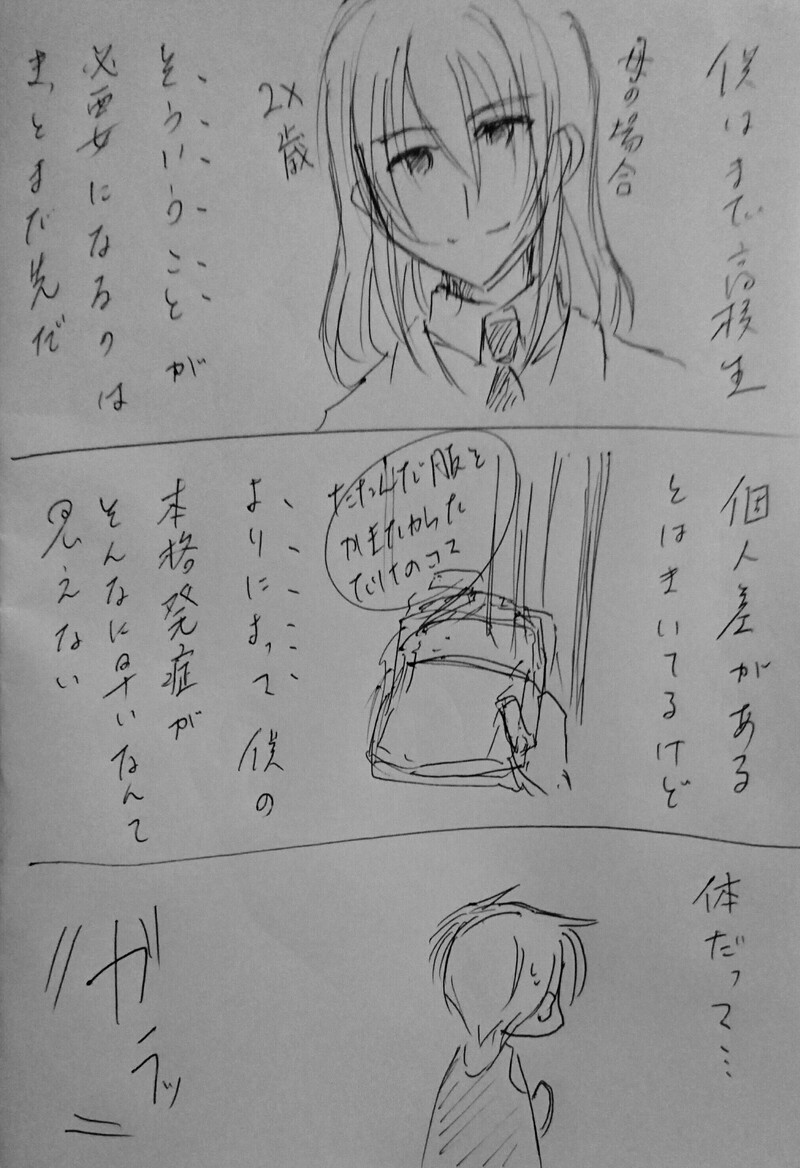 僕はまだ高校生
母の場合
2X歳
そういうことが
必要になるのは
きっとまだ先だ
個人差がある
とはきいてるけど
たたんだ服を
かきたかった
だけのコマ
よりによって僕の
本格発症が
そんなに早いなんて
思えない
体だって…
ガラッ